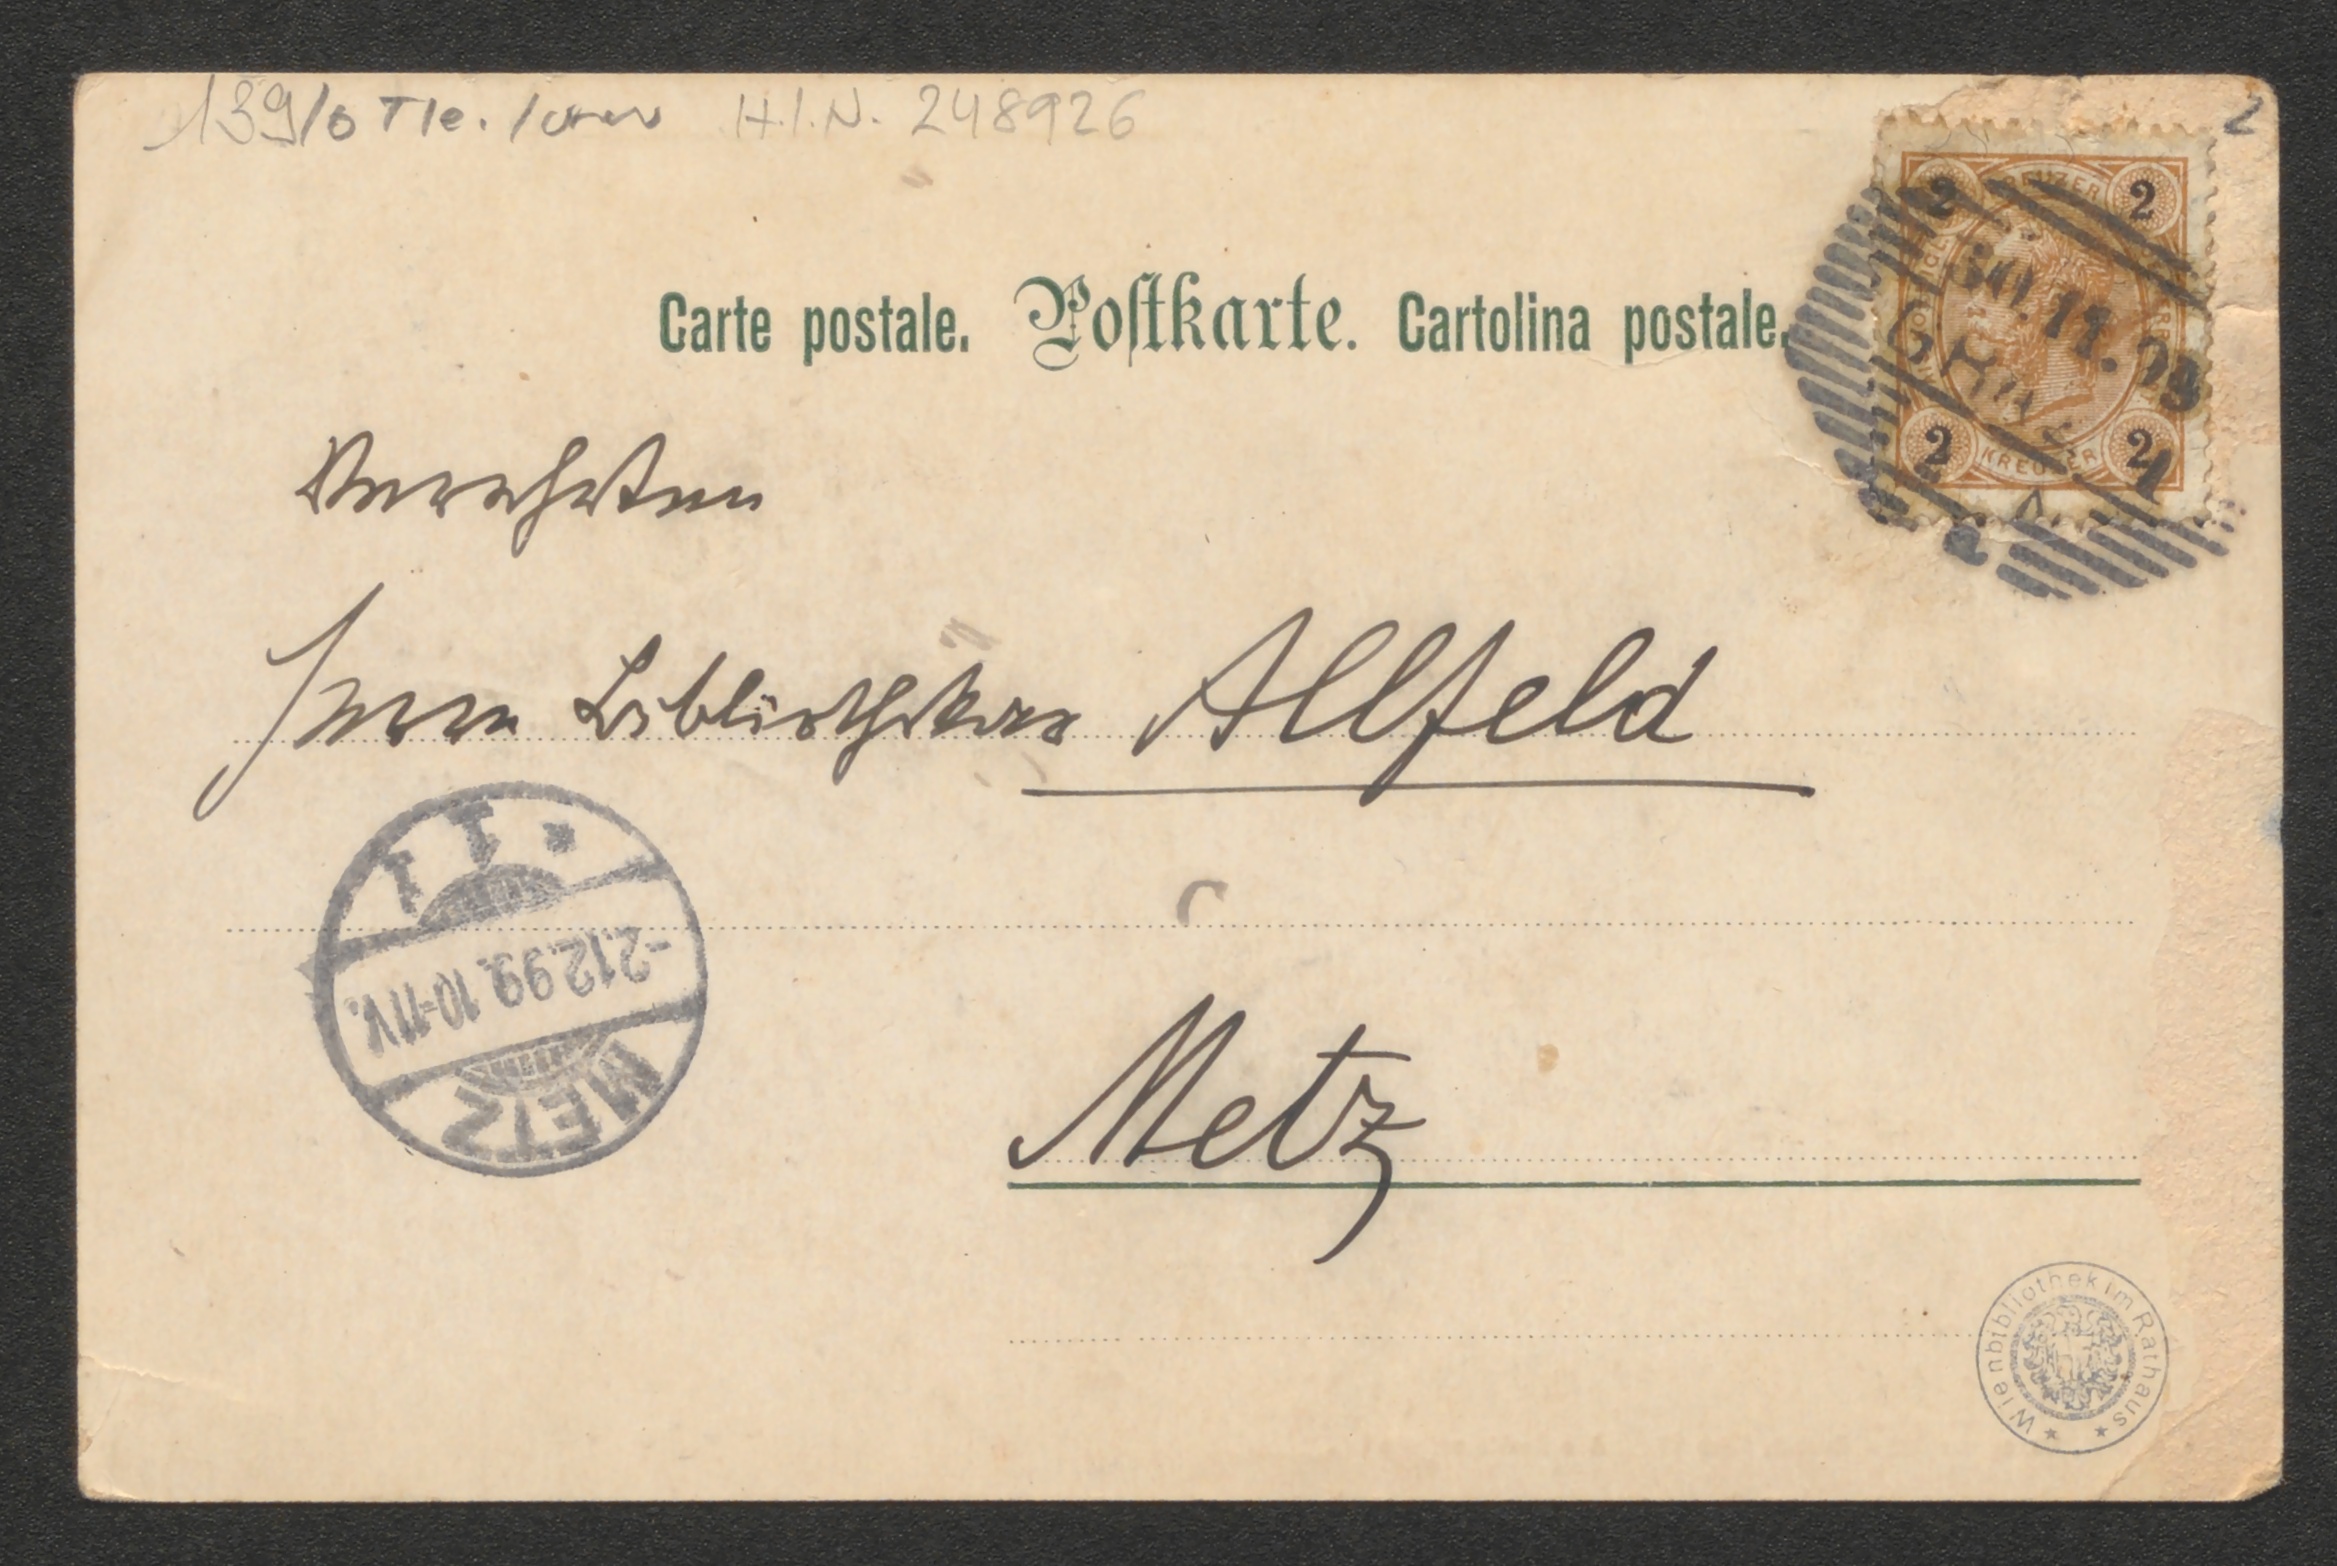 139/6 H.I.N. 248926
2
Carte postale. Postkarte. Cartolina postale.
2 KREUZER 2
30.11.99
GRAZ
2 KREUZER 2
1
Verehrten
Herrn Bibliothekar Allfeld
* 1 1
-2.12.99. 10-11V.
METZ
Metz
Wienbibliothek im Rathaus